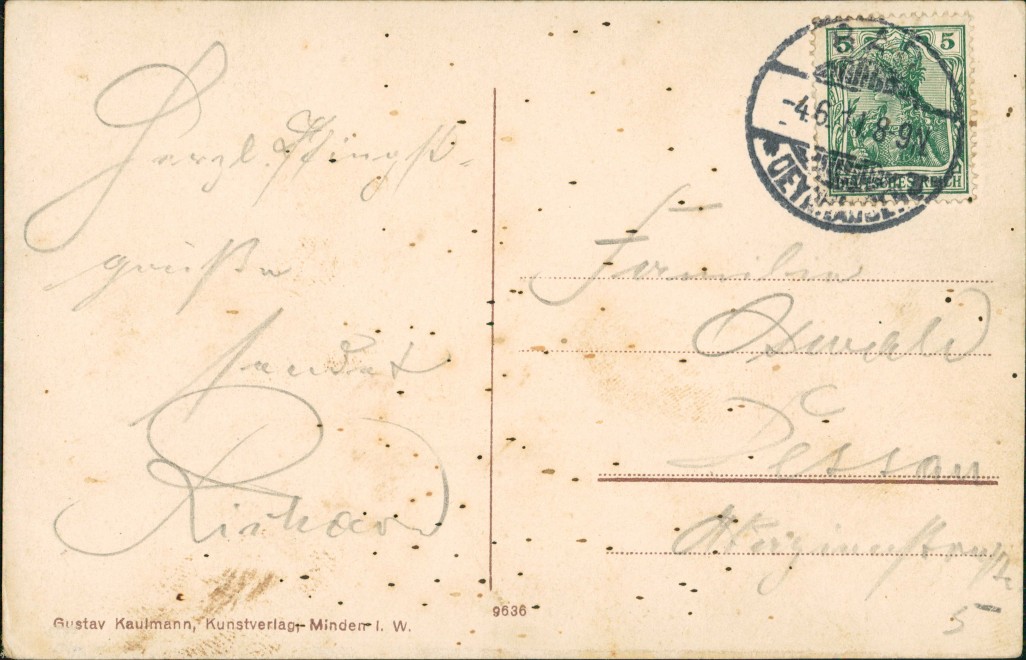 Herzl. Pfingst-
grüße
sendet
Richard
Gustav Kaulmann, Kunstverlag, Minden i. W.
9636
5 5
DEUTSCHES REICH
BAD
-4.6.11.8-9N
* OEYNHAUSEN
Familie
Oswald
Dessau
5